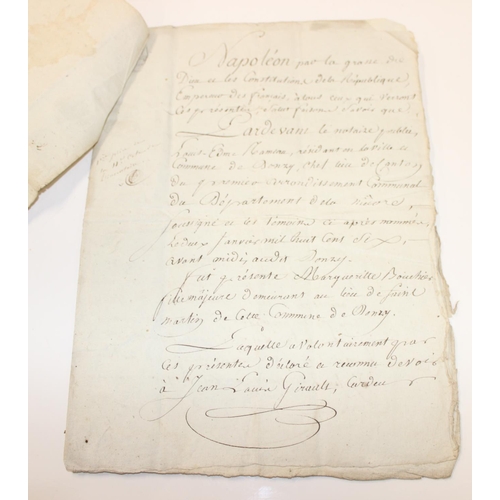 Napoléon par la grace de
Dieu et les Constitutions de la République
Empereur des français, a tous ceux qui verront
Ces présentes, Salut faisons Savoir que
Pardevant le notaire public,
Edme Rameau, résidant en la ville et
Commune de Donzy, chef lieu de Canton
du premier arrondissement Communal
du Département de la Nièvre,
Soussigné et les témoins ci après nommés,
Le deux janvier mil huit Cent Six,
avant midi, audit Donzy.
fut présente Margueritte
fille majeure demeurant au lieu de Saint
martin de Cette Commune de Donzy.
Laquelle a volontairement par
Ces présentes déclaré et reconnu devoir
à Jean Louis Girault,